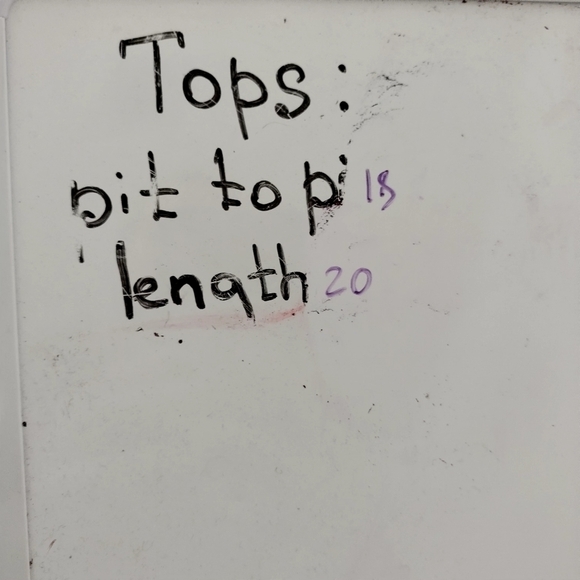 Tops:
pit to pi 18
length 20